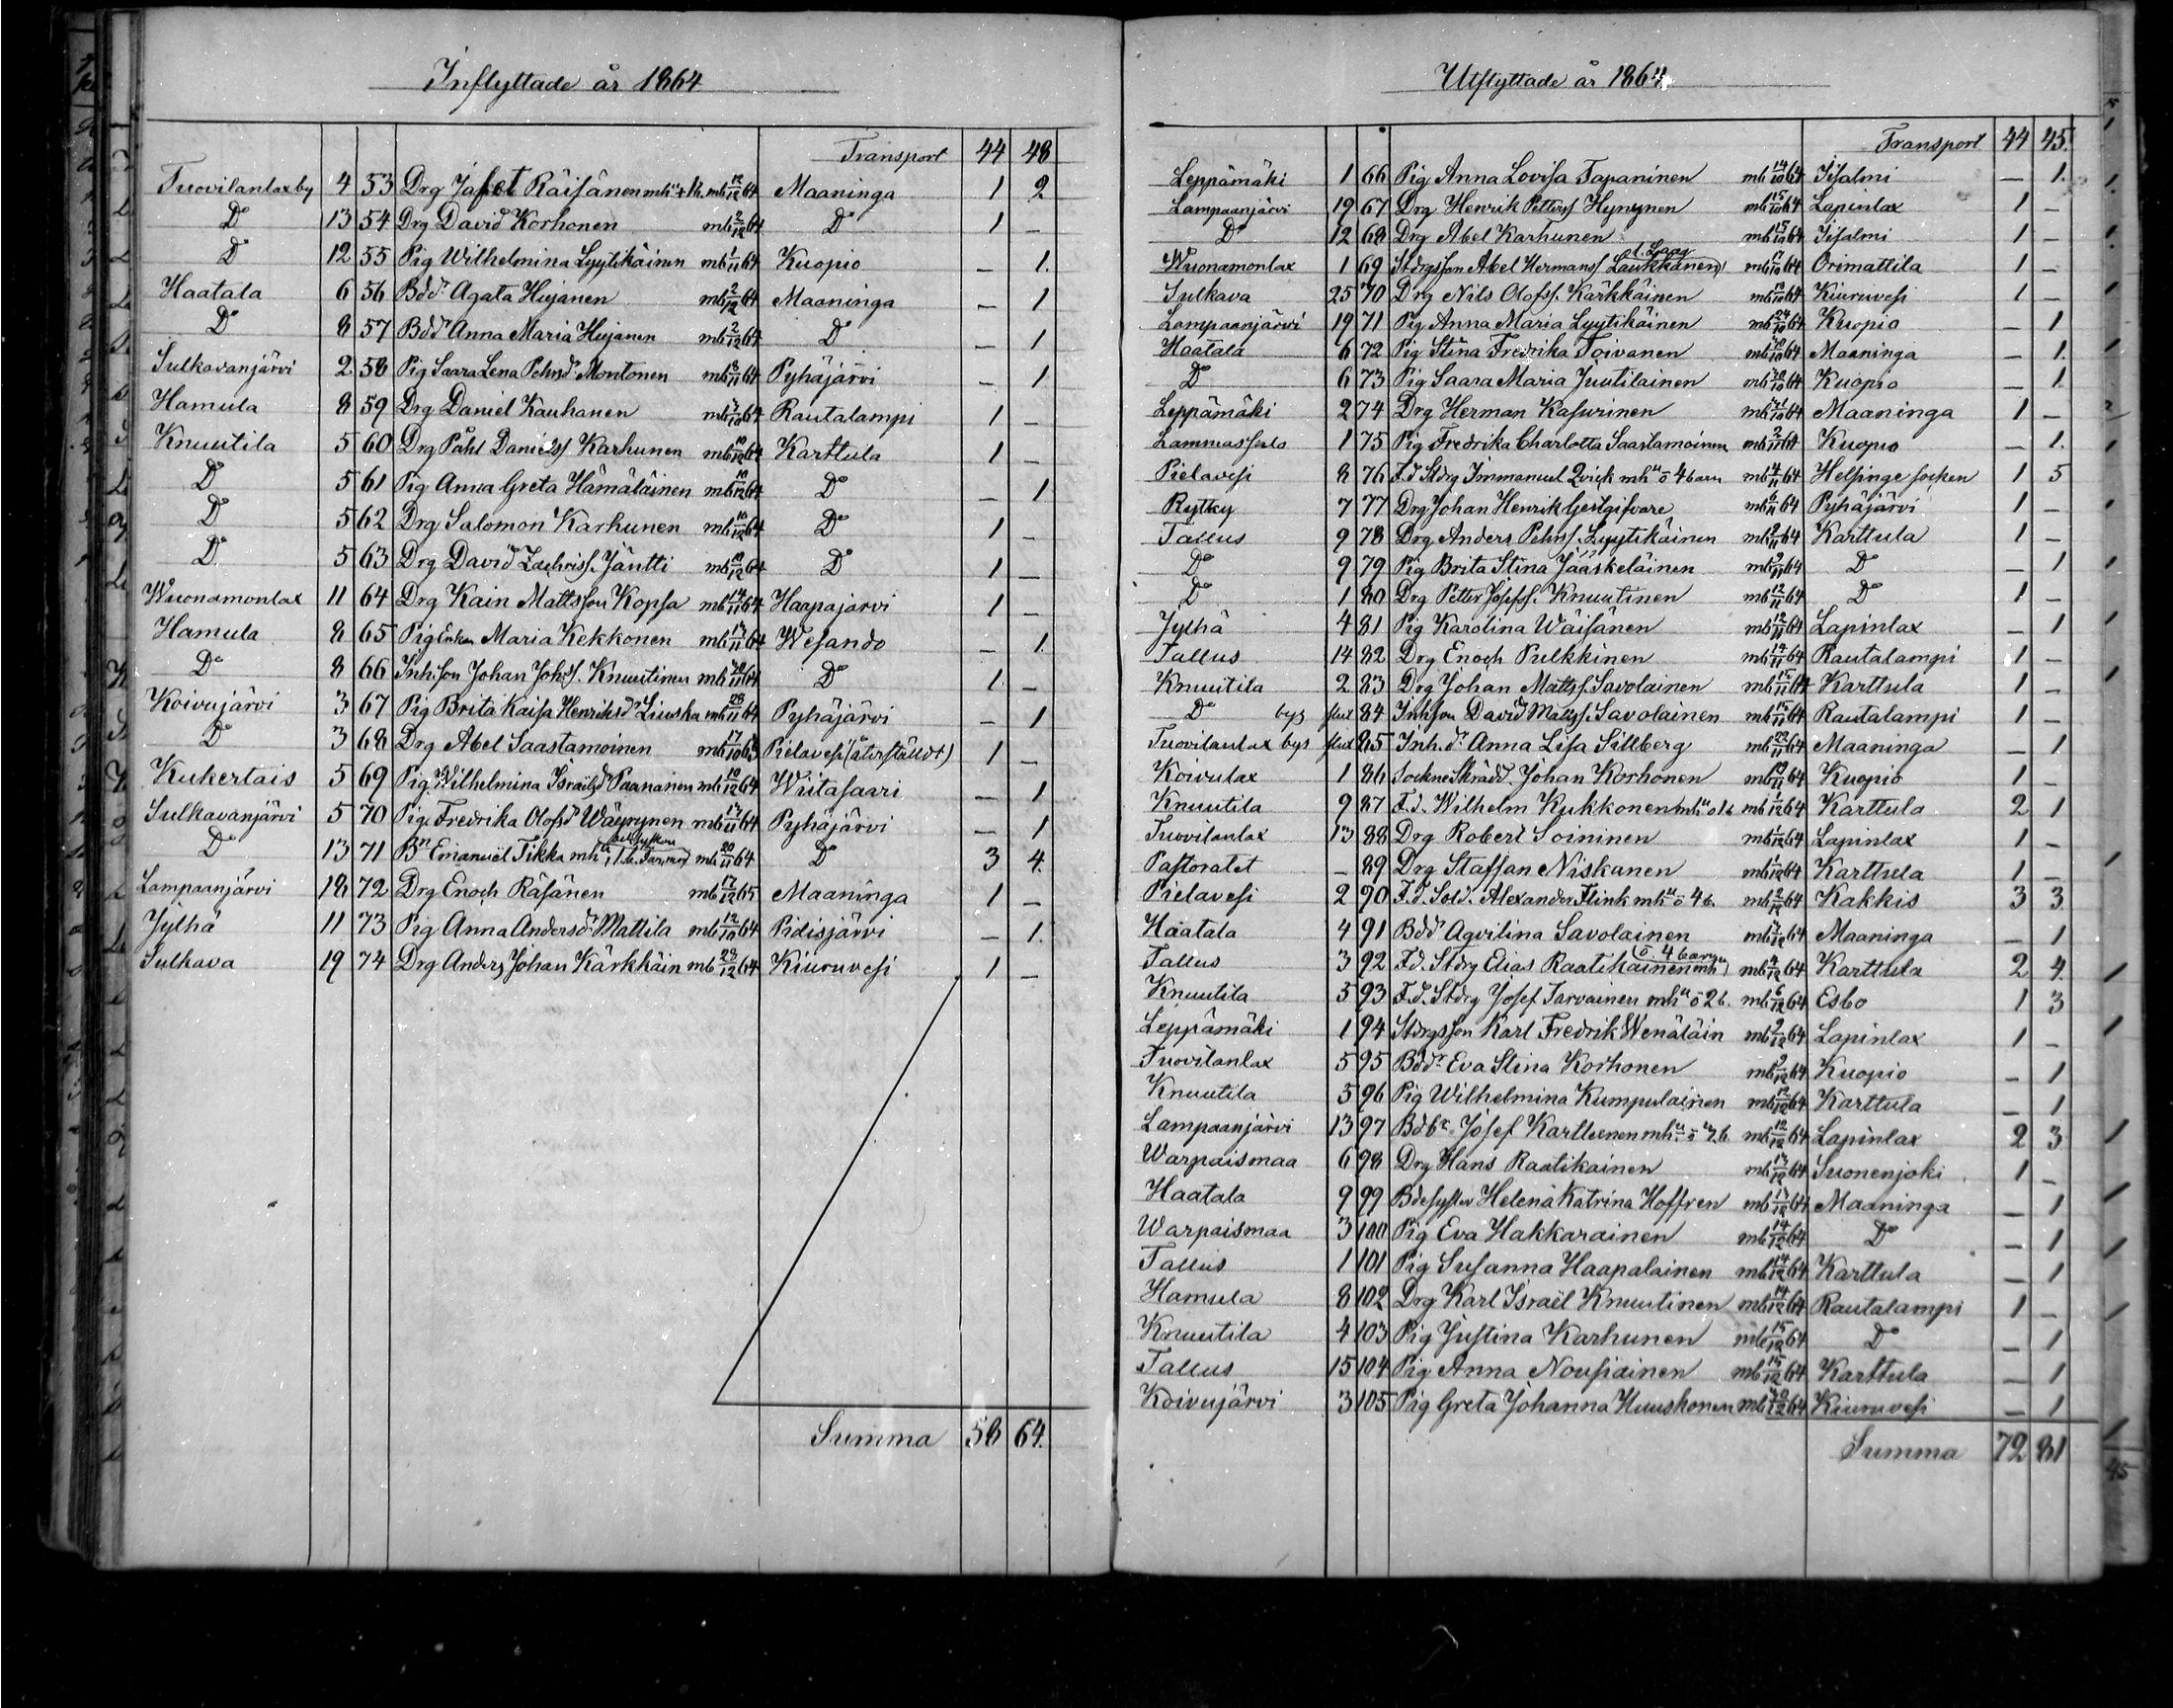 Inflyttade år 1864
Transport 44 48
Tuovilanlax by 4 53 Drg Jafet Räisänen mhu + 1b. mb 12/12 64 Maaninga 1 2
Do 13 54 Drg David Korhonen mb 2/12 64 Do 1 —
Do 12 55 Pig Wilhelmina Lyytikäinen mb 1/11 64 Kuopio — 1.
Haatala 6 56 Bdd. Agata Hujanen mb 2/12 64 Maaninga — 1
Do 8 57 Bdd Anna Maria Hujanen mb 2/12 64 Do — 1
Sulkavanjärvi 2 58 Pig Saara Lena Pehrsd. Montonen mb 8/11 64 Pyhäjärvi — 1
Hamula 8 59 Drg Daniel Kauhanen mb 64 Rautalampi 1 —
Knuutila 5 60 Drg Påhl Daniels Karhunen mb 10/12 64 Karttula 1 —
Do 5 61 Pig Anna Greta Hämäläinen mb 10/12 64 Do — 1
Do 5 62 Drg Salomon Karhunen mb 10/12 64 Do 1 —
Do 5 63 Drg David Zachriss. Jäntti mb 10/12 64 Do 1 —
Wuonamonlax 11 64 Drg Kain Mattsson Kopsa mb 14/11 64 Haapajärvi 1 —
Hamula 8 65 Pig Enkan Maria Kekkonen mb 13/11 64 Wesando — 1
Do 8 66 Inh.son Johan Johss. Knuutinen mb 20/11 64 Do 1 —
Koivujärvi 3 67 Pig Brita Kaisa Henriksd. Liuska mb 28/11 64 Pyhäjärvi — 1
Do 3 68 Drg Abel Saastamoinen mb 17/10 63 Pielavesi (återställdt) 1 —
Kukertais 5 69 Pig Wilhelmina Israelsd Paananen mb 10/12 64 Wiitasaari — 1
Sulkavanjärvi 5 70 Pig. Fredrika Olofsd Wäyrynen mb 13/11 64 Pyhäjärvi — 1
Do 13 71 Bn Emanuël Tikka mhu, 1 b. mb 20/11 64 Do 3 4.
Lampaanjärvi 18 72 Drg Enoch Räsänen mb 17/12 65 Maaninga 1 —
Jylhä 11 73 Pig Anna Andersd. Mattila mb 12/10 64 Pidisjärvi — 1.
Sulkava 19 74 Drg Anders Johan Kärkkäin mb 28/12 64 Kiuruvesi 1 —
Summa 58 64.
Utflyttade år 1864
Transport 44 45.
Leppämäki 1 66 Pig Anna Lovisa Tapaninen mb 14/10 64 Iisalmi — 1.
Lampaanjärvi 19 67 Drg Henrik Petterss Hynynen mb 15/10 64 Lapinlax 1 —
Do 12 68 Drg Abel Karhunen mb 15/10 64 Iisalmi 1 —
Wuonamonlax 1 69 Stdrgsson Abel Hermanss Laukkanen mb 17/10 64 Orimattila 1 —
Sulkava 25 70 Drg Nils Olofss. Kärkkäinen mb 19/10 64 Kiuruvesi 1 —
Lampaanjärvi 19 71 Pig Anna Maria Lyytikäinen mb 24/10 64 Kuopio — 1
Haatala 6 72 Pig Stina Fredrika Toivanen mb 64 Maaninga — 1.
Do 6 73 Pig Saara Maria Juutilainen mb 64 Kuopio — 1
Leppämäki 2 74 Drg Herman Kasurinen mb 64 Maaninga 1 —
Lammassalo 1 75 Pig Fredrika Charlotta Saastamoinen mb 2/11 64 Kuopio — 1.
Pielavesi 8 76 F.d Stdrg Immanuel Qvick mhu o 4 barn mb 4/11 64 Helsinge socken 1 5
Rytky 7 77 Drg Johan Henrik Gestgifvare mb 6/11 64 Pyhäjärvi 1 —
Tallus 9 78 Drg Anders Pehrss. Lyytikäinen mb 9/11 64 Karttula 1 —
Do 9 79 Pig Brita Stina Jääskeläinen mb 9/11 64 Do — 1
Do 1 80 Drg Petter Josefss. Knuutinen mb 12/11 64 Do 1 —
Jylhä 4 81 Pig Karolina Wäisänen mb 12/11 64 Lapinlax — 1
Tallus 14 82 Drg Enoch Pulkkinen mb 14/11 64 Rautalampi 1 —
Knuutila 2 83 Drg Johan Mattss. Savolainen mb 15/11 64 Karttula 1 —
Do bys slut 84 Inhson David Matss. Savolainen mb 15/11 64 Rautalampi 1 —
Tuovilanlax bys slut 85 Inh.d. Anna Lisa Sillberg mb 64 Maaninga — 1
Koivulax 1 86 Sockne Skrädd. Johan Korhonen mb 64 Kuopio 1 —
Knuutila 9 87 F.d. Wilhelm Kukkonen mhu o 1 b mb 1/12 64 Karttula 2 1
Tuovilanlax 13 88 Drg Robert Soininen mb 1/12 64 Lapinlax 1 —
Pastoratet — 89 Drg Staffan Niskanen mb 1/12 64 Karttula 1 —
Pielavesi 2 90 F.d. Sold. Alexander Flink mhu o 4 b. mb 2/12 64 Kakkis 3 3
Haatala 4 91 Bdd Aqvilina Savolainen mb 64 Maaninga — 1
Tallus 3 92 F.d. Stdrg Elias Raatikainen mhu o. 4 barn mb 4/12 64 Karttula 2 4.
Knuutila 5 93 F.d. Stdrg Josef Tarvainen mhu o 2 b. mb 6/12 64 Esbo 1 3
Leppämäki 1 94 Stdrgsson Karl Fredrik Wenäläin mb 9/12 64 Lapinlax 1 —
Tuovilanlax 5 95 Bdd. Eva Stina Korhonen mb 9/12 64 Kuopio — 1
Knuutila 5 96 Pig Wilhelmina Kumpulainen mb 12/12 64 Karttula — 1
Lampaanjärvi 13 97 Bdbr. Josef Karttunen mhu o b. mb 12/12 64 Lapinlax 2 3
Warpaismaa 6 98 Drg Hans Raatikainen mb 13/12 64 Suonenjoki 1 —
Haatala 9 99 Bdesyster Helena Katrina Hoffren mb 13/12 64 Maaninga — 1
Warpaismaa 3 100 Pig Eva Hakkarainen mb 14/12 64 Do — 1
Tallus 1 101 Pig Susanna Haapalainen mb 14/12 64 Karttula — 1
Hamula 8 102 Drg Karl Israël Knuutinen mb 14/12 64 Rautalampi 1 —
Knuutila 4 103 Pig Justina Karhunen mb 15/12 64 Do — 1
Tallus 15 104 Pig Anna Nousiainen mb 15/12 64 Karttula — 1
Koivujärvi 3 105 Pig Greta Johanna Huuskonen mb 64 Kiuruvesi — 1
Summa 72 81